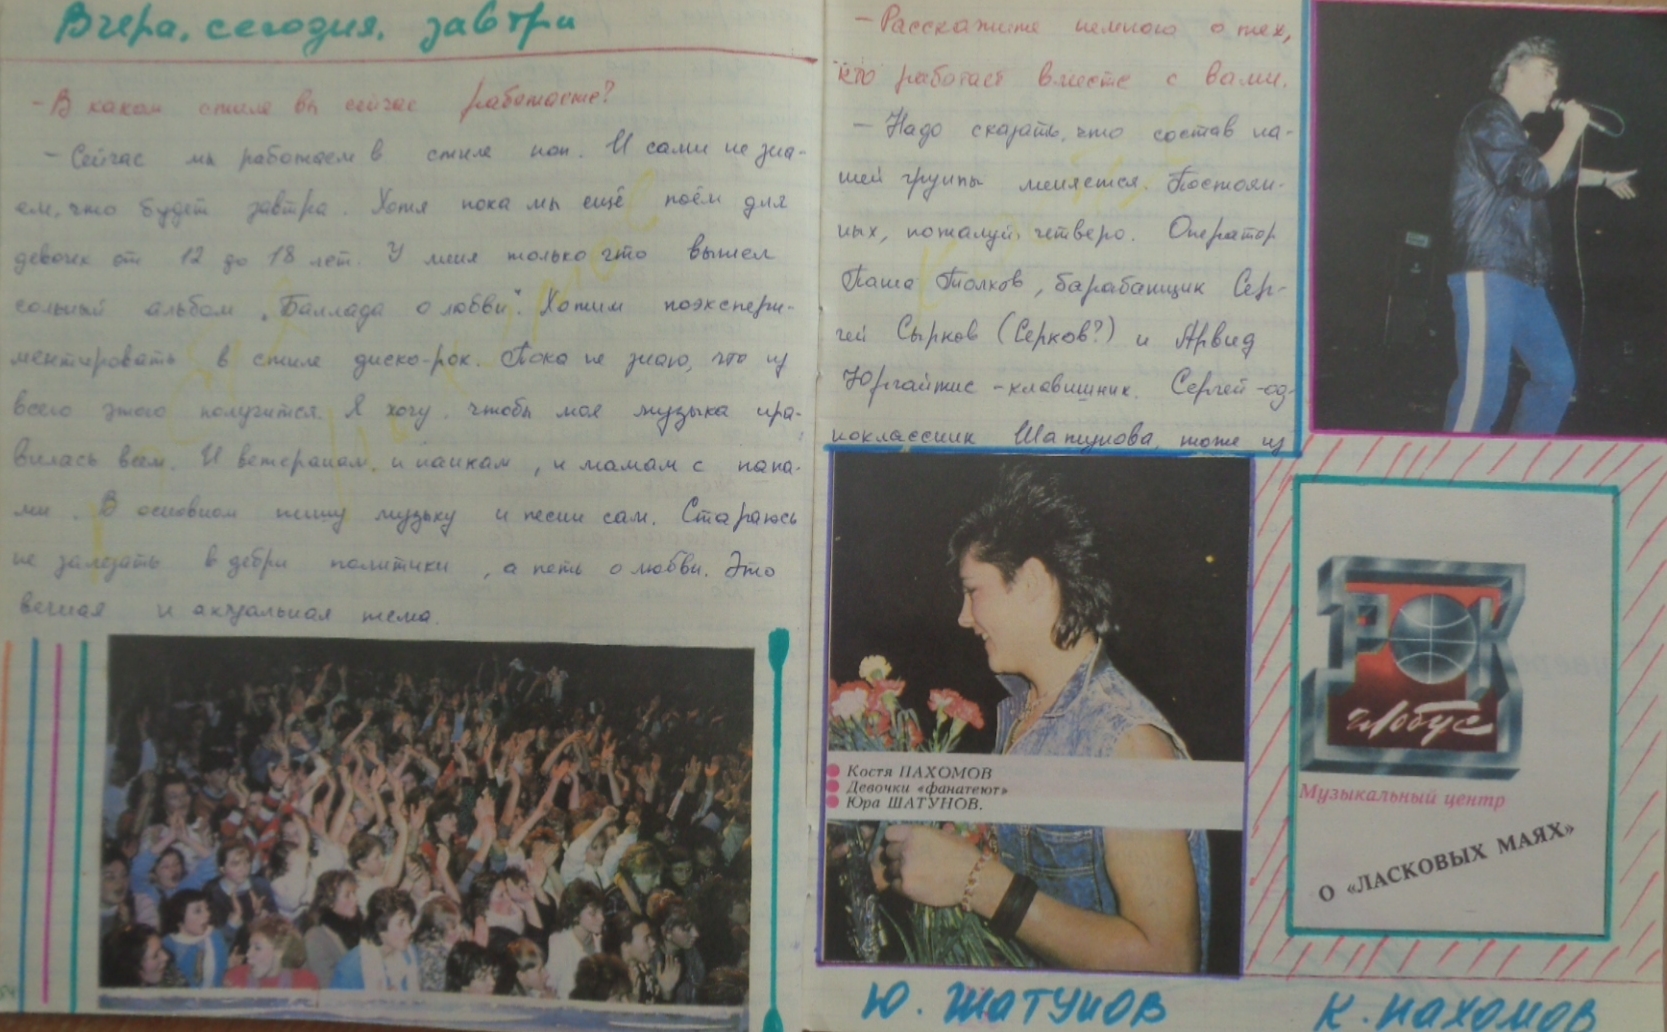 Вчера, сегодня, завтра
- В каком стиле вы сейчас работаете?
- Сейчас мы работаем в стиле поп. И сами не зна-
ем, что будет завтра. Хотя пока мы ещё поём для
девочек от 12 до 18 лет. У меня только что вышел
сольный альбом „Баллада о любви". Хотим поэкспери-
ментировать в стиле диско-рок. Пока не знаю, что из
всего этого получится. Я хочу, чтобы моя музыка нра-
вилась всем. И ветеранам, и панкам, и мамам с папа-
ми. В основном пишу музыку и песни сам. Стараюсь
не залезать в дебри политики, а петь о любви. Это
вечная и актуальная тема.
- Расскажите немного о тех,
кто работает вместе с вами.
- Надо сказать, что состав на-
шей группы меняется. Постоян-
ных, пожалуй, четверо. Оператор
Паша Толков, барабанщик Сер-
гей Сырков (Серков?) и Арвид
Юргайтис - клавишник. Сергей - од-
ноклассник Шатунова, тоже из
Костя ПАХОМОВ
Девочки «фанатеют»
Юра ШАТУНОВ.
РОК
глобус
Музыкальный центр
О «ЛАСКОВЫХ МАЯХ»
Ю. ШАТУНОВ
К. ПАХОМОВ